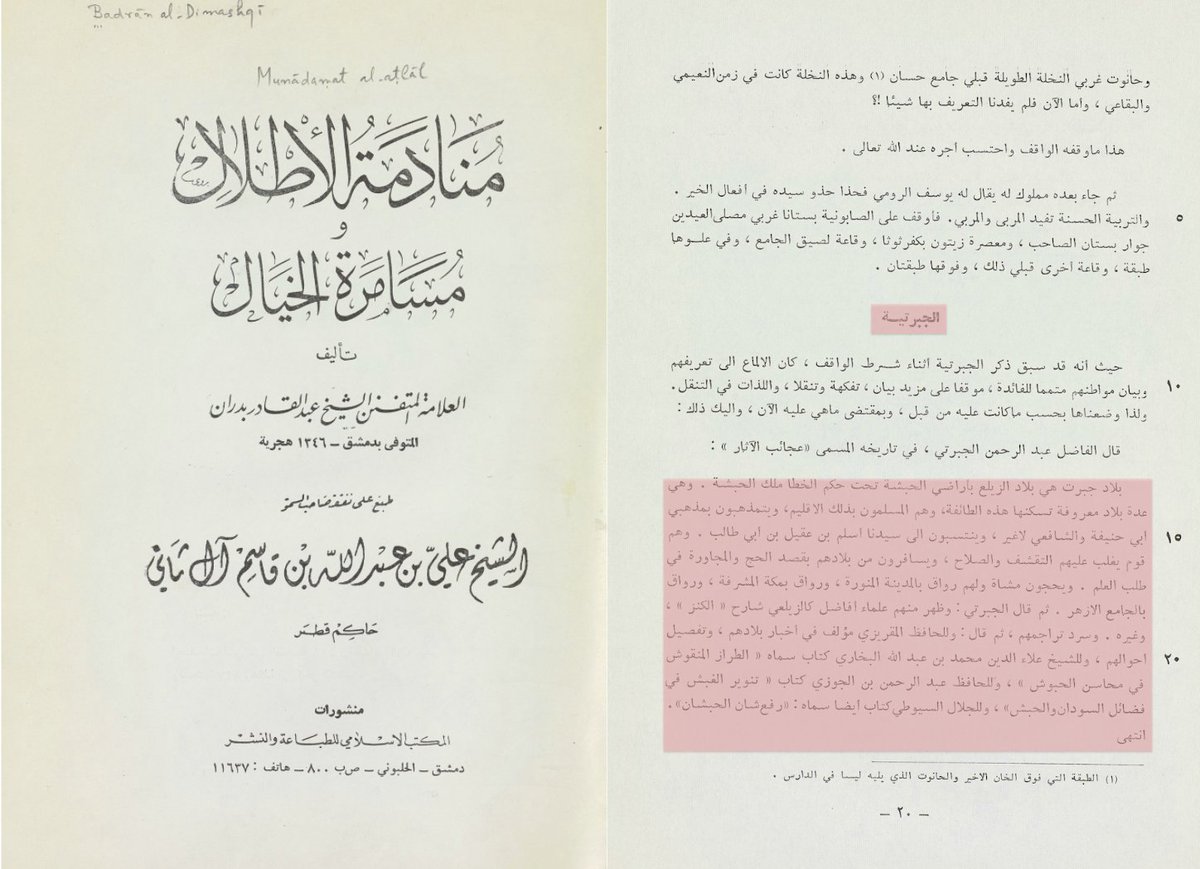 Badrān al-Dimashqī
Munādamat al-aṭlāl
مُنَادَمَةُ الأَطْلَال
و
مُسَامَرَة الخَيَال
تأليف
العلامة المتفنن الشيخ عبد القادر بدران
المتوفى بدمشق – ١٣٤٦ هجرية
طبع على نفقة صاحب السمو
الشيخ علي بن عبد الله بن قاسم آل ثاني
حاكم قطر
منشورات
المكتب الاسلامي للطباعة والنشر
دمشق – الحلبوني – ص ب ٨٠٠ – هاتف : ١١٦٣٧
وحانوت غربي النخلة الطويلة قبلي جامع حسان (١) وهذه النخلة كانت في زمن النعيمي
والبقاعي ، واما الآن فلم يفدنا التعريف بها شيئا !؟
هذا ماوقفه الواقف واحتسب اجره عند الله تعالى .
ثم جاء بعده مملوك له يقال له يوسف الرومي فحذا حذو سيده في أفعال الخير .
والتربية الحسنة تفيد المربى والمربي. فاوقف على الصابونية بستانا غربي مصلى العيدين
٥
جوار بستان الصاحب ، ومعصرة زيتون بكفرثوثا ، وقاعة لصيق الجامع ، وفي علوها
طبقة ، وقاعة اخرى قبلي ذلك ، وفوقها طبقتان .
الجبرتية
حيث أنه قد سبق ذكر الجبرتية اثناء شرط الواقف ، كان الالماع الى تعريفهم
وبيان مواطنهم متمما للفائدة ، موقفا على مزيد بيان ، تفكهة وتنقلا ، واللذات في التنقل.
١٠
ولذا وضعناها بحسب ماكانت عليه من قبل ، وبمقتضى ماهي عليه الآن ، واليك ذلك :
قال الفاضل عبد الرحمن الجبرتي ، في تاريخه المسمى «عجائب الآثار » :
بلاد جبرت هي بلاد الزيلع بأراضي الحبشة تحت حكم الخطا ملك الحبشة . وهي
عدة بلاد معروفة تسكنها هذه الطائفة، وهم المسلمون بذلك الاقليم، ويتمذهبون بمذهبي
ابي حنيفة والشافعي لاغير ، وينتسبون الى سيدنا اسلم بن عقيل بن أبي طالب . وهم
١٥
قوم يغلب عليهم التقشف والصلاح ، ويسافرون من بلادهم بقصد الحج والمجاورة في
طلب العلم . ويحجون مشاة ولهم رواق بالمدينة المنورة ، ورواق بمكة المشرفة ، ورواق
بالجامع الازهر . ثم قال الجبرتي : وظهر منهم علماء أفاضل كالزيلعي شارح « الكنز » ،
وغيره . وسرد تراجمهم ، ثم قال : وللحافظ المقريزي مؤلف في أخبار بلادهم ، وتفصيل
احوالهم ، وللشيخ علاء الدين محمد بن عبد الله البخاري كتاب سماه « الطراز المنقوش
٢٠
في محاسن الحبوش » ، وللحافظ عبد الرحمن بن الجوزي كتاب « تنوير الغبش في
فضائل السودان والحبش» ، وللجلال السيوطي كتاب ايضا سماه : «رفع شان الحبشان».
انتهى
(١) الطبقة التي فوق الخان الاخير والحانوت الذي يليه ليسا في الدارس .
– ٢٠ –